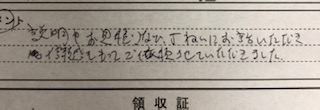 メント
説明やお見積りなど、丁ねいにお話いただき
信頼をもってご依頼させていただきました。
領収証